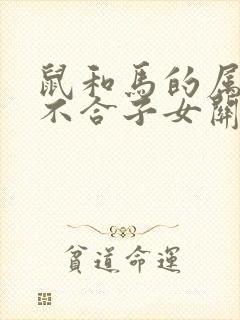 鼠和馬的属
不合子女關
貧道命運